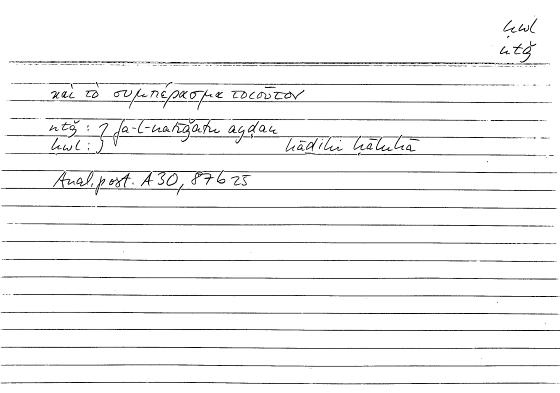 ḥwl
ntǧ
καὶ τὸ συμπέρασμα τοιοῦτον
ntǧ : } fa-l-natīǧatu ayḍan
ḥwl : } hāḏihi ḥāluhā
Anal. post. A 30, 87b25